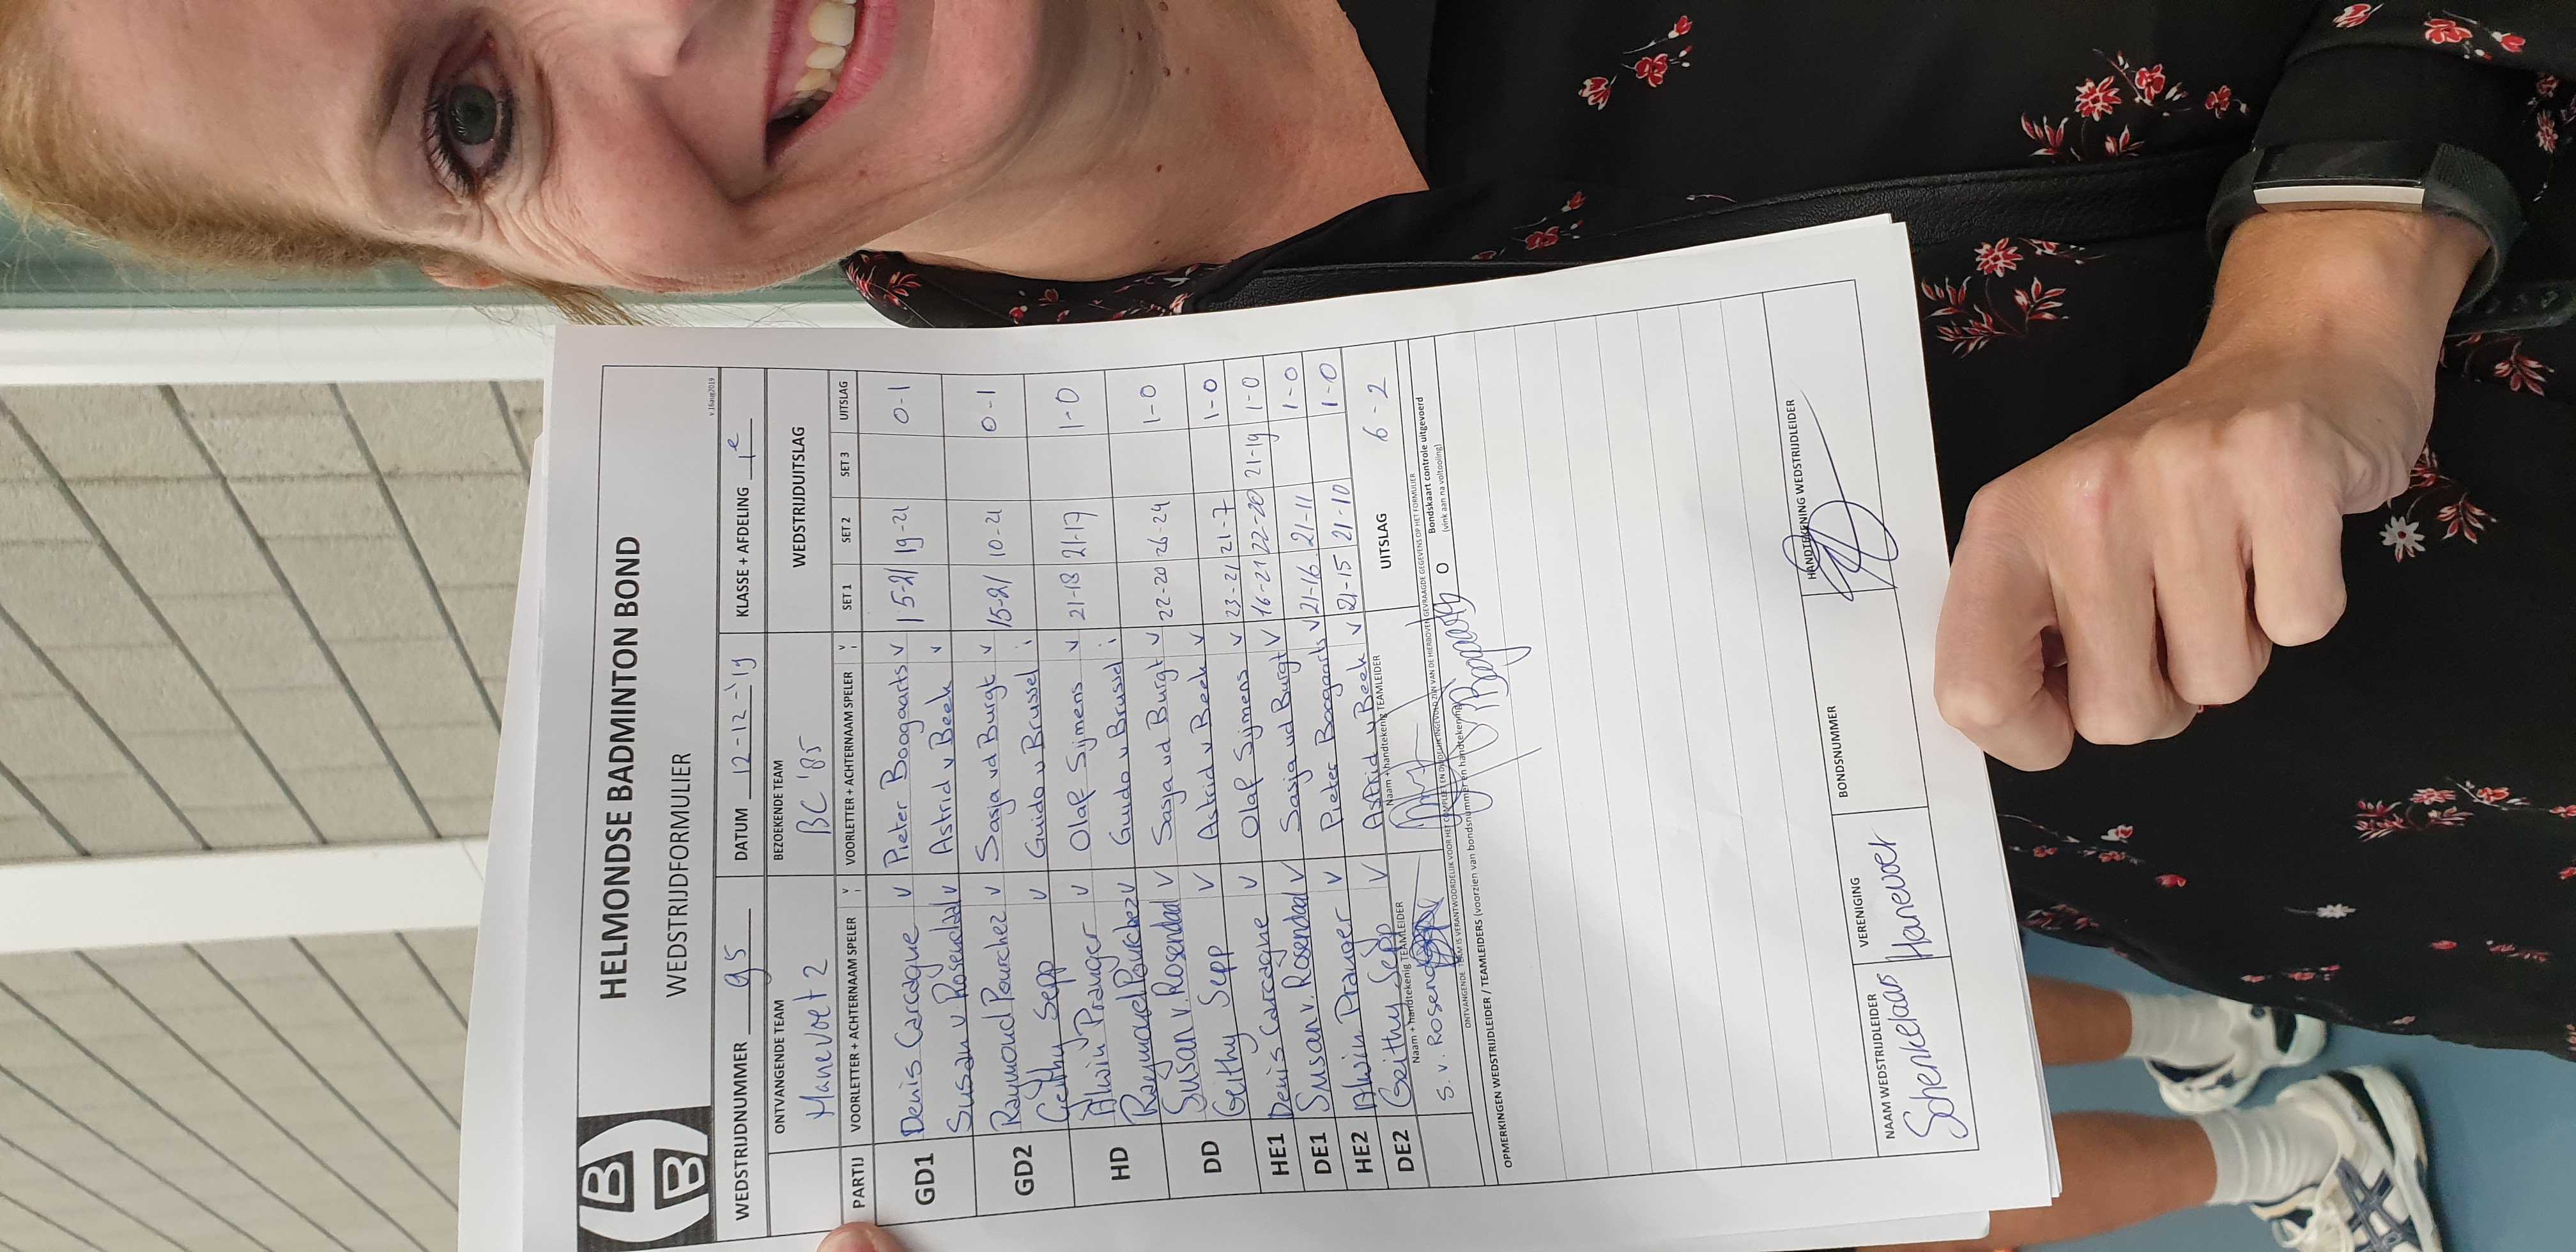 B
B
HELMONDSE BADMINTON BOND
WEDSTRIJDFORMULIER
v.16aug2019
WEDSTRIJDNUMMER 95 DATUM 12-12-'19 KLASSE + AFDELING 1e
ONTVANGENDE TEAM BEZOEKENDE TEAM WEDSTRIJDUITSLAG
Hanevoet 2 BC '85
PARTIJ VOORLETTER + ACHTERNAAM SPELER V VOORLETTER + ACHTERNAAM SPELER V SET 1 SET 2 SET 3 UITSLAG
GD1 Denis Carcagne V Pieter Boogaarts V 15-21 19-21 0-1
Susan v Rosendaal V Astrid v Beek V
GD2 Raymond Pourchez V Sasja vd Burgt V 15-21 10-21 0-1
Geithy Sepp V Guido v Brussel i
HD Alwin Pranger V Olaf Sijmens V 21-18 21-17 1-0
Raymond Pourchez V Guido v Brussel i
DD Susan v. Rosendaal V Sasja vd Burgt V 22-20 26-24 1-0
Geithy Sepp V Astrid v Beek V
HE1 Denis Carcagne V Olaf Sijmens V 23-21 21-7 1-0
DE1 Susan v. Rosendaal V Sasja vd Burgt V 16-21 22-20 21-19 1-0
HE2 Alwin Pranger V Pieter Boogaarts V 21-16 21-11 1-0
DE2 Geithy Sepp V Astrid v Beek V 21-15 21-10 1-0
Naam + handtekenig TEAMLEIDER Naam + handtekenig TEAMLEIDER UITSLAG 6-2
S. v. Rosendaal
ONTVANGENDE TEAM IS VERANTWOORDELIJK VOOR HET COMPLEET EN DUIDELIJK INGEVULD ZIJN VAN DE HIERBOVEN GEVRAAGDE GEGEVENS OP HET FORMULIER
OPMERKINGEN WEDSTRIJDLEIDER / TEAMLEIDERS (voorzien van bondsnummer en handtekening) O Bondskaart controle uitgevoerd
(vink aan na voltooiing)
P Boogaarts
NAAM WEDSTRIJDLEIDER VERENIGING BONDSNUMMER HANDTEKENING WEDSTRIJDLEIDER
Schenkelaars Hanevoet